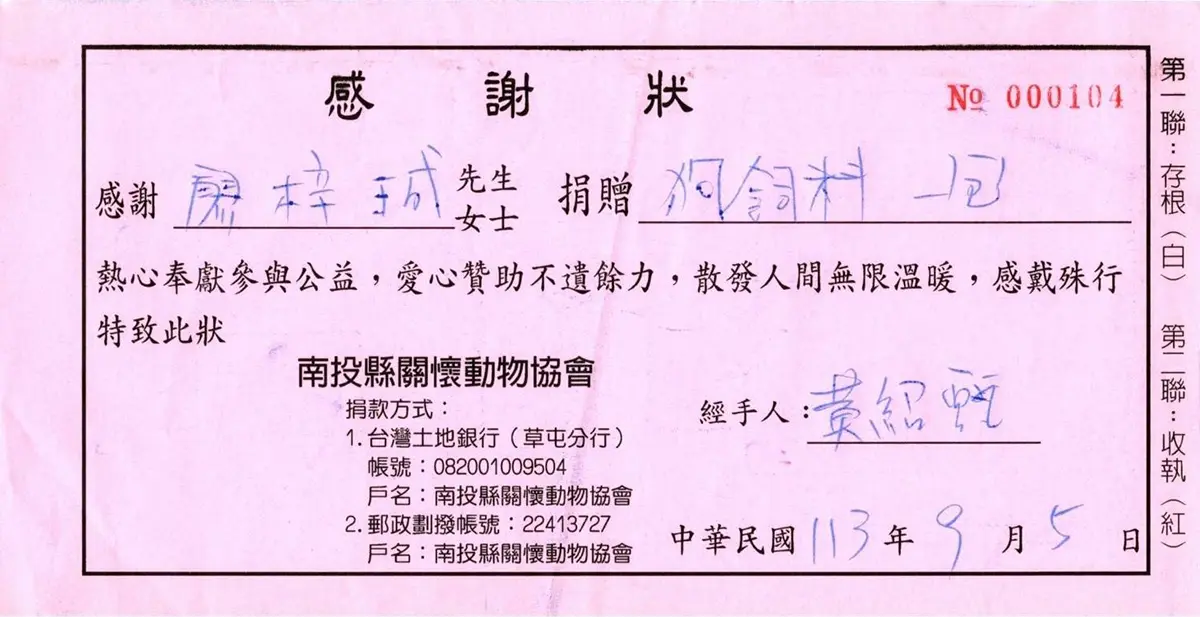 感謝狀
№ 000104
感謝 廖梓珹 先生 女士 捐贈 狗飼料 一包
熱心奉獻參與公益，愛心贊助不遺餘力，散發人間無限溫暖，感戴殊行
特致此狀
南投縣關懷動物協會
捐款方式：
1. 台灣土地銀行（草屯分行）
帳號：082001009504
戶名：南投縣關懷動物協會
2. 郵政劃撥帳號：22413727
戶名：南投縣關懷動物協會
經手人：黃紹
中華民國 113 年 9 月 5 日
第一聯：存根（白） 第二聯：收執（紅）